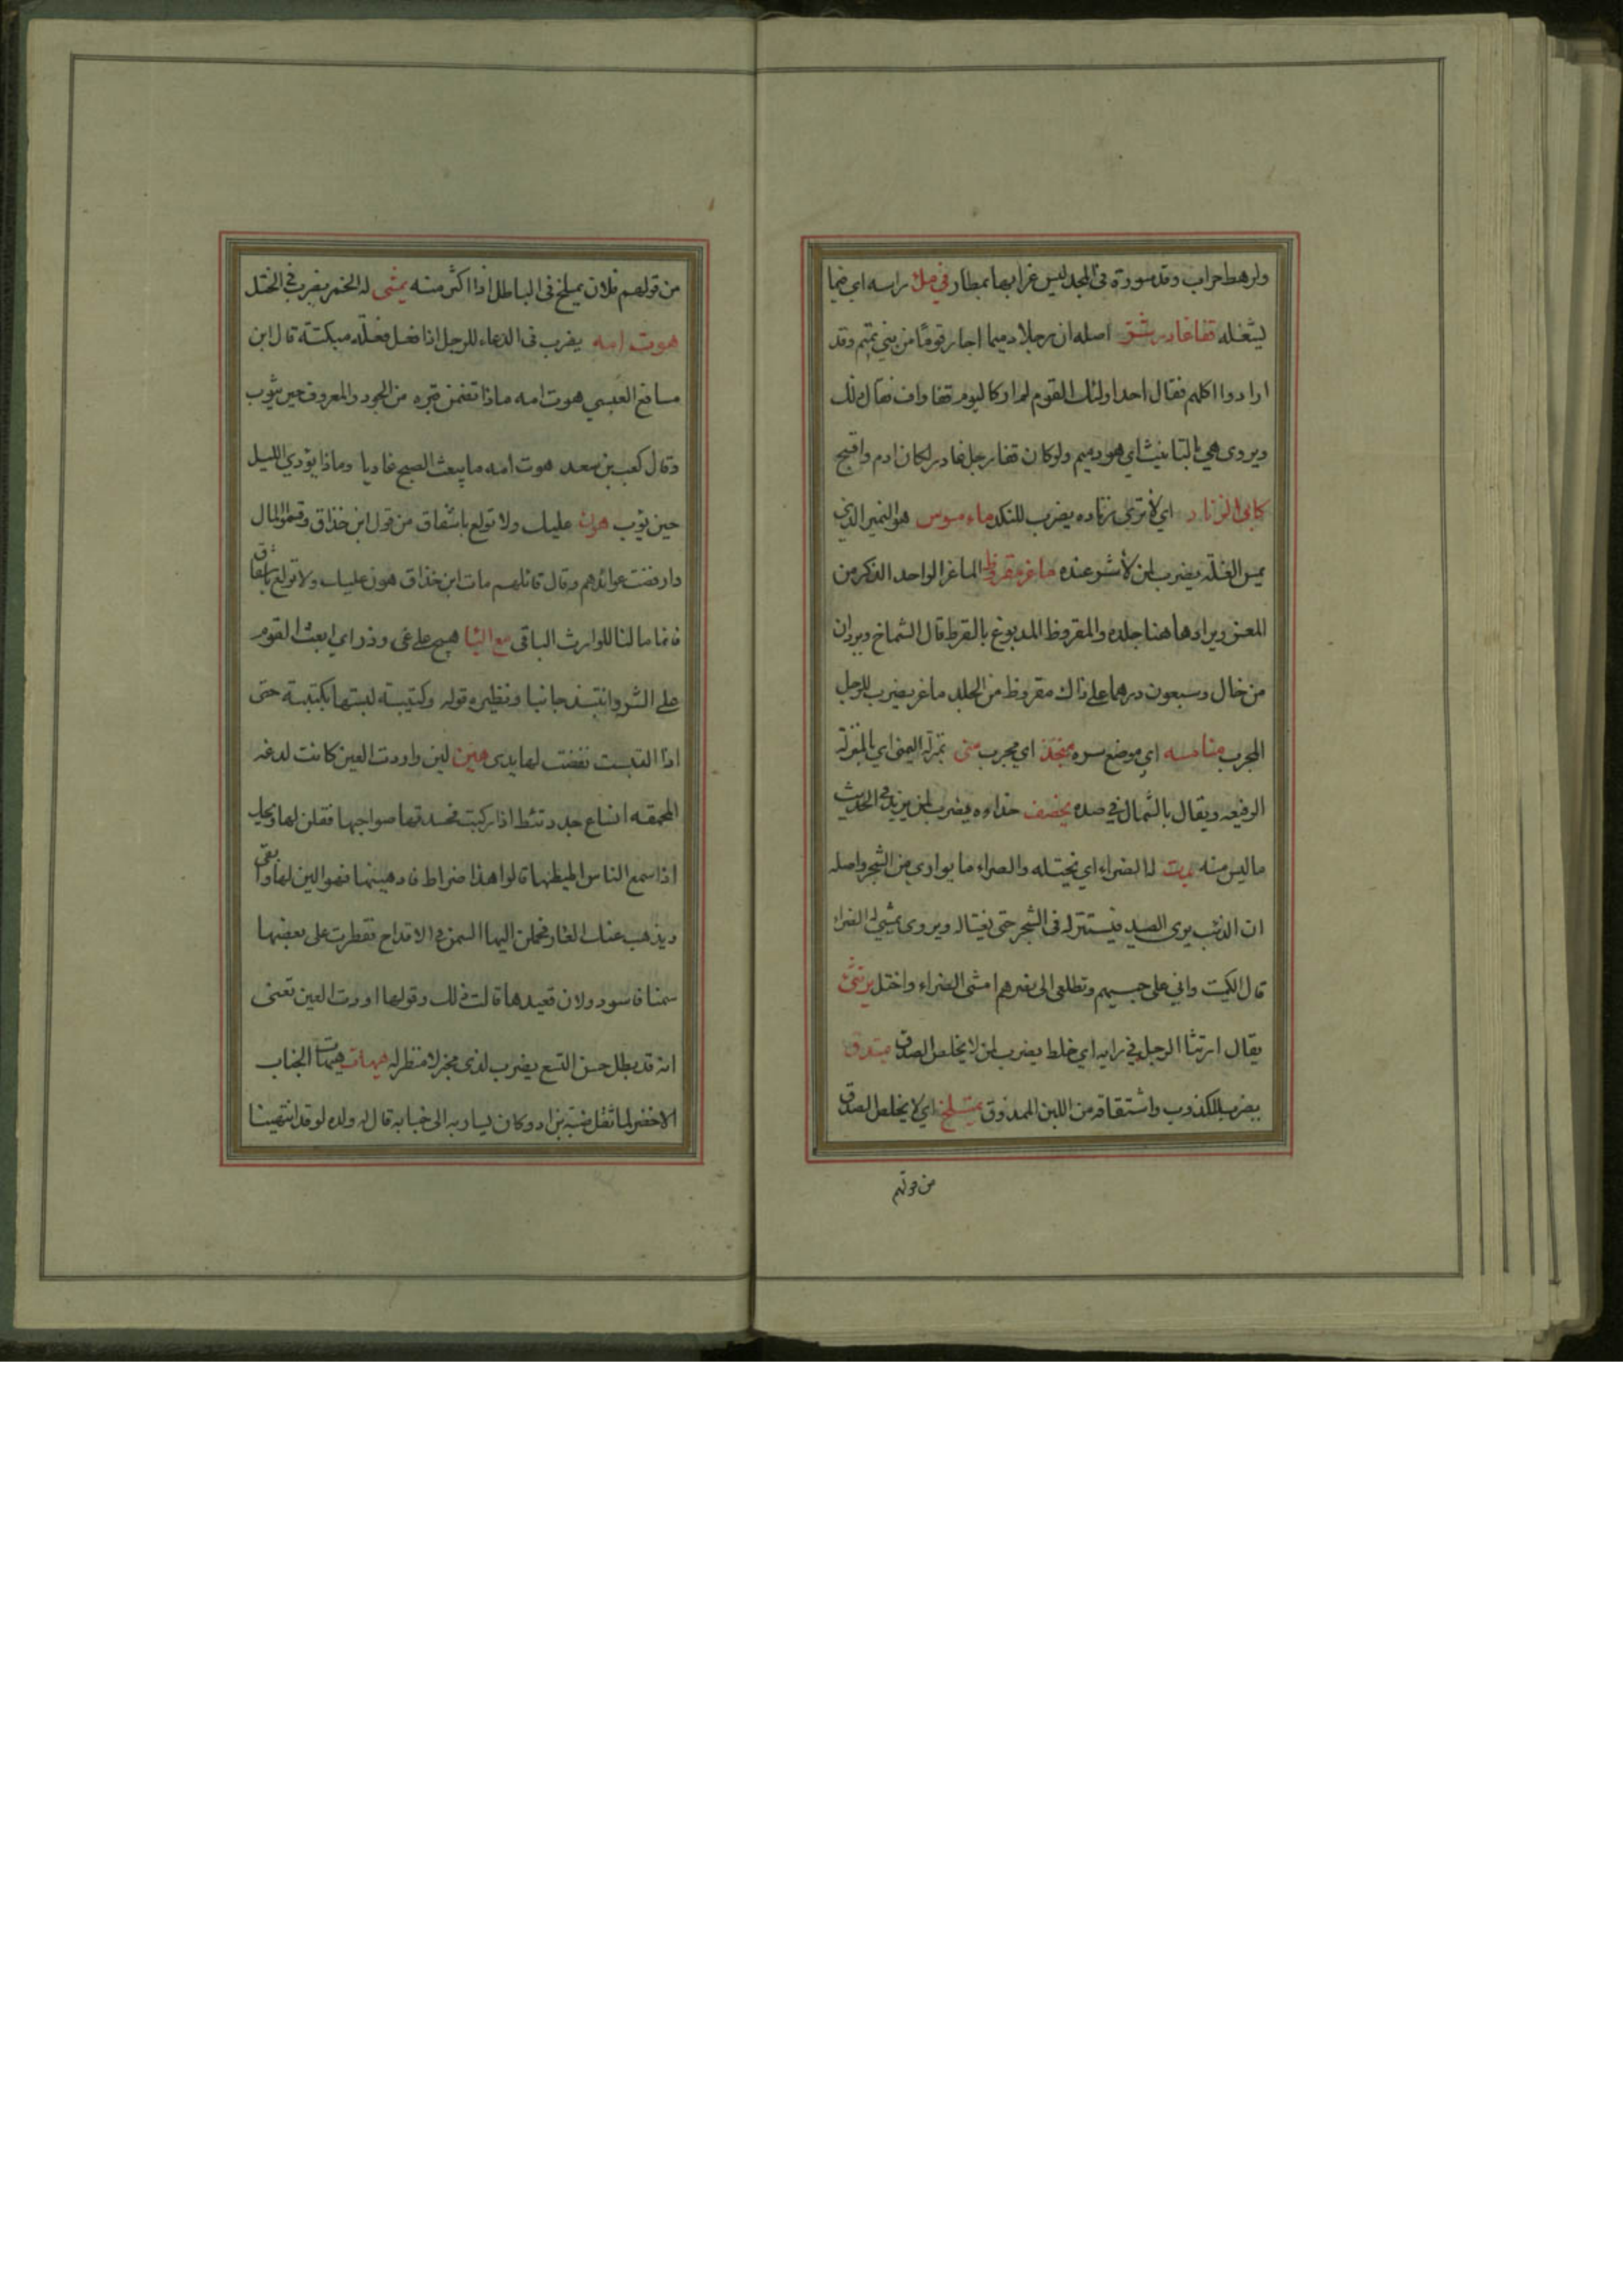 ولرهط حراب وقد سورة فى المجد ليس غرابها بمطار في مثل راسه اى فيما
يشغله قفا غادر شق اصله ان رجلا دميما اجار قوما من بني تميم وقد
ارادوا اكلهم فقال احد اولئك القوم لم ار كاليوم قفا واف فقال ذلك
ويروى هي بالتانيث اي هو دميم ولو كان قفا رجل غادر لكان ادم واقبح
كابى الزناد اي لا ترى زناده يضرب للنكد ماء مسوس هو النمير الذي
يمس الغلة يضرب لمن لا شر عنده ماغر مقروظ الماغر الواحد الذكر من
المعز ويراد هاهنا جلده والمقروظ المدبوغ بالقرظ قال الشماخ وبردان
من خال وسبعون درهما على ذاك مقروظ من الجلد ماغر يضرب للرجل
المجرب منافسه اي موضع سره منجذ اي مجرب منى بمنزلة اليمنى اي بالمنزلة
الرفيعه ويقال بالشمال في صده يخصف حذاءه يضرب لمن يزيد فى الحديث
ما ليس منه يدب له الضراء اى يختله والضراء ما يوارى من الشجر واصله
ان الذئب يرى الصيد فيستتر له فى الشجر حتى يغتاله ويروى يمشي له الضراء
قال الكميت واني على حبيهم وتطلعى الى نصرهم امشى الضراء واختل يرتثى
يقال ارتثا الرجل في رايه اي خلط يضرب لمن لا يخلص الصدق مبتذق
يضرب للكذوب واشتقاقه من اللبن الممذوق يمتلخ اي لا يخلص الصدق
من قولهم
من قولهم فلان يملخ فى الباطل اذا اكثر منه يمشى له الخمر يضرب فى الختل
هوت امه يضرب فى الدعاء للرجل اذا فعل فعلة مبكتة قال ابن
مسافع العبسي هوت امه ماذا تضمن قبره من الجود والمعروف حين يثوب
وقال كعب بن سعد هوت امه ما يبعث الصبح غاديا وماذا يؤدي الليل
حين يؤب هون عليك ولا تولع باشفاق من قول ابن خذاق وقسموا المال
وارفضت عوائدهم وقال قائلهم مات ابن خذاق هون عليك ولا تولع باشفاق
فانما مالنا للوارث الباقى مع اليا هيج على غى وذر اي ابعث القوم
على الشر وانتبذ جانبا ونظيره قوله وكتيبة لبستها بكتيبة حتى
اذا التبست نفضت لها يدى هين لين واودت العين كانت لدغه
المحمقه انساع جدد تئط اذا ركبت فحسدتها صواحبها فقلن لها ويحك
اذا سمع الناس اطيطها قالوا هذا ضراط فادهنيها فهو الين لها وابقى
ويذهب عنك العار فحملن اليها السمن فى الاقداح فقطرت على بعضها
سمنا فاسود ولان قعيدها قالت ذلك وقولها اودت العين تعنى
انه قد بطل حسن النسع يضرب لذى مخبر لا منظر له هيهات هيهات الجناب
الاخضر لما ثقل ضبة بن اد وكان يساربه الى خبابه قال له ولده لو قد انتهينا